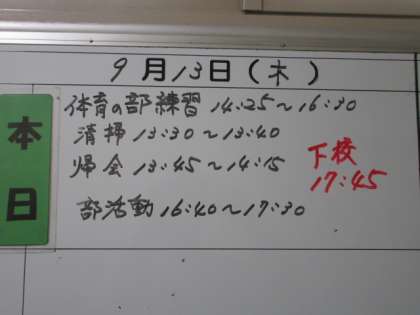 9月13日(木)
本日
体育の部練習 14:25～16:30
清掃 13:30～13:40
帰会 13:45～14:15
部活動 16:40～17:30
下校
17:45